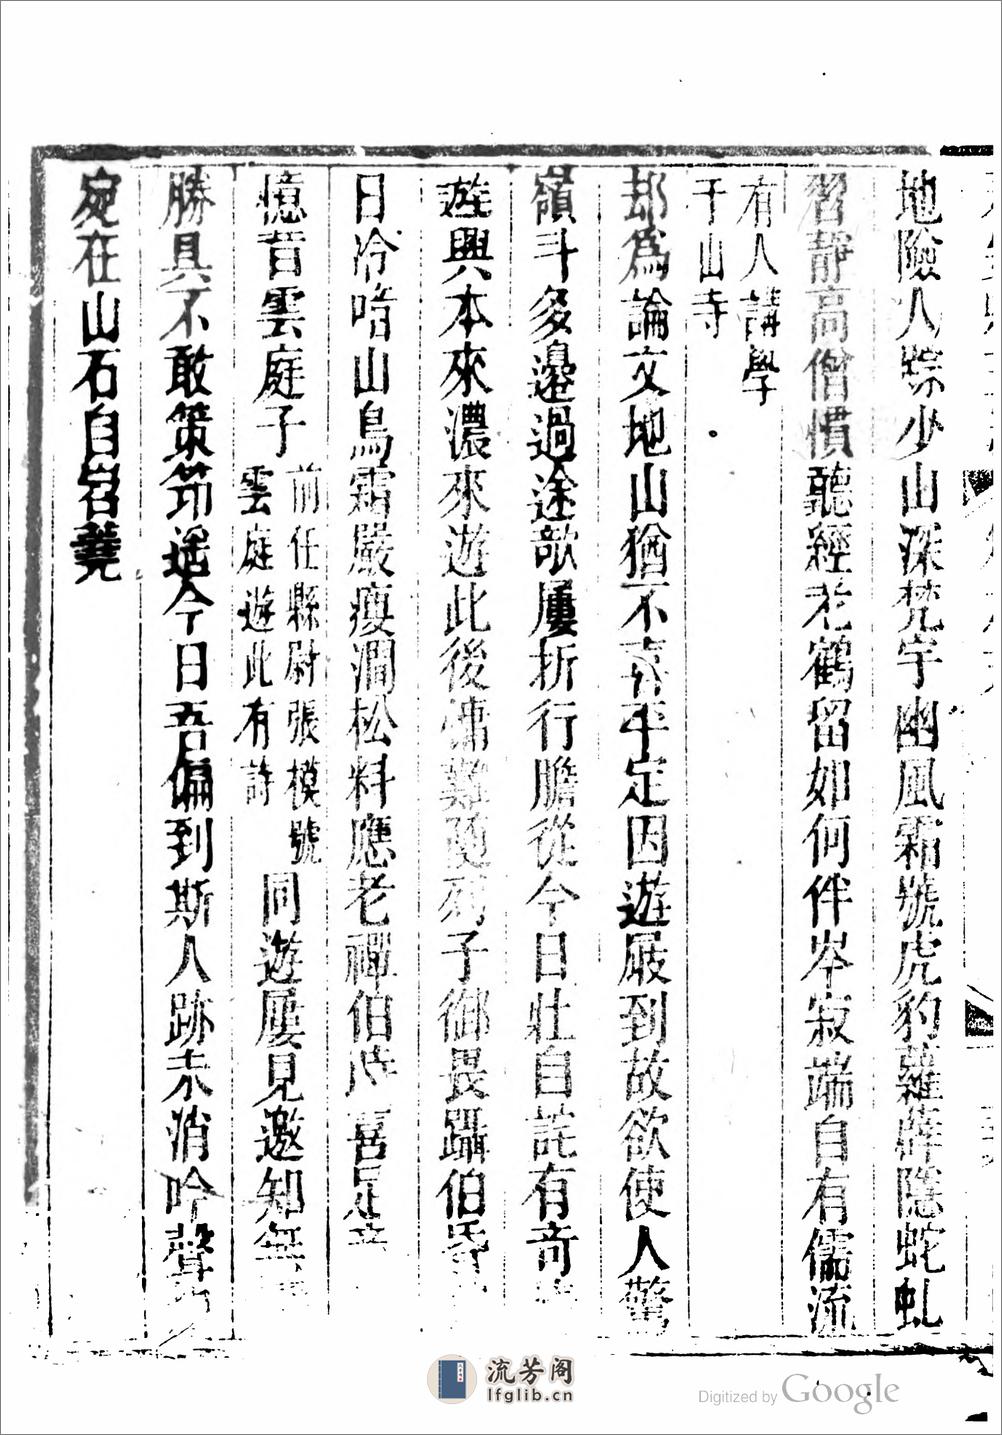 地險人踪少山深梵宇幽風霜號虎豹蘿薜隱蛇虬
習靜高僧慣聽經老鶴留如何伴岑寂端自有儒流
有人講學
于山寺
却為論文地山猶不喜平定因遊屐到故欲使人驚
嶺斗多邊過途欹屢折行膽從今日壯自詫有奇
遊興本來濃來遊此後慵難隨列子御畏躡伯昏
日冷啼山鳥霜嚴瘦澗松料應老禪伯 喜足音
憶昔雲庭子
前任縣尉張模號
雲庭遊此有詩
同遊屢見邀知無
勝具不敢策笻遙今日吾偏到斯人跡未消吟聲
宛在山石自岧嶤
流芳阁
lfglib.cn
Digitized by Google